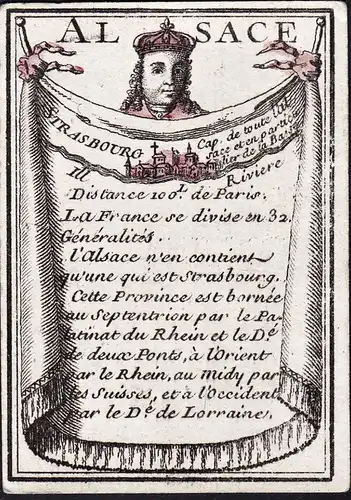 ALSACE
STRASBOURG
Cap. de toute l'Al
sace et en particu
lier de la Basse
Ill Riviere
Distance 100.l. de Paris.
La France se divise en 32.
Généralités.
l'Alsace n'en contient
qu'une qui est Strasbourg.
Cette Province est bornée
au Septentrion par le Pa-
latinat du Rhein et le D.é
de deux Ponts, à l'Orient
par le Rhein, au midy par
les Suisses, et a l'Occident
par le D.é de Lorraine,